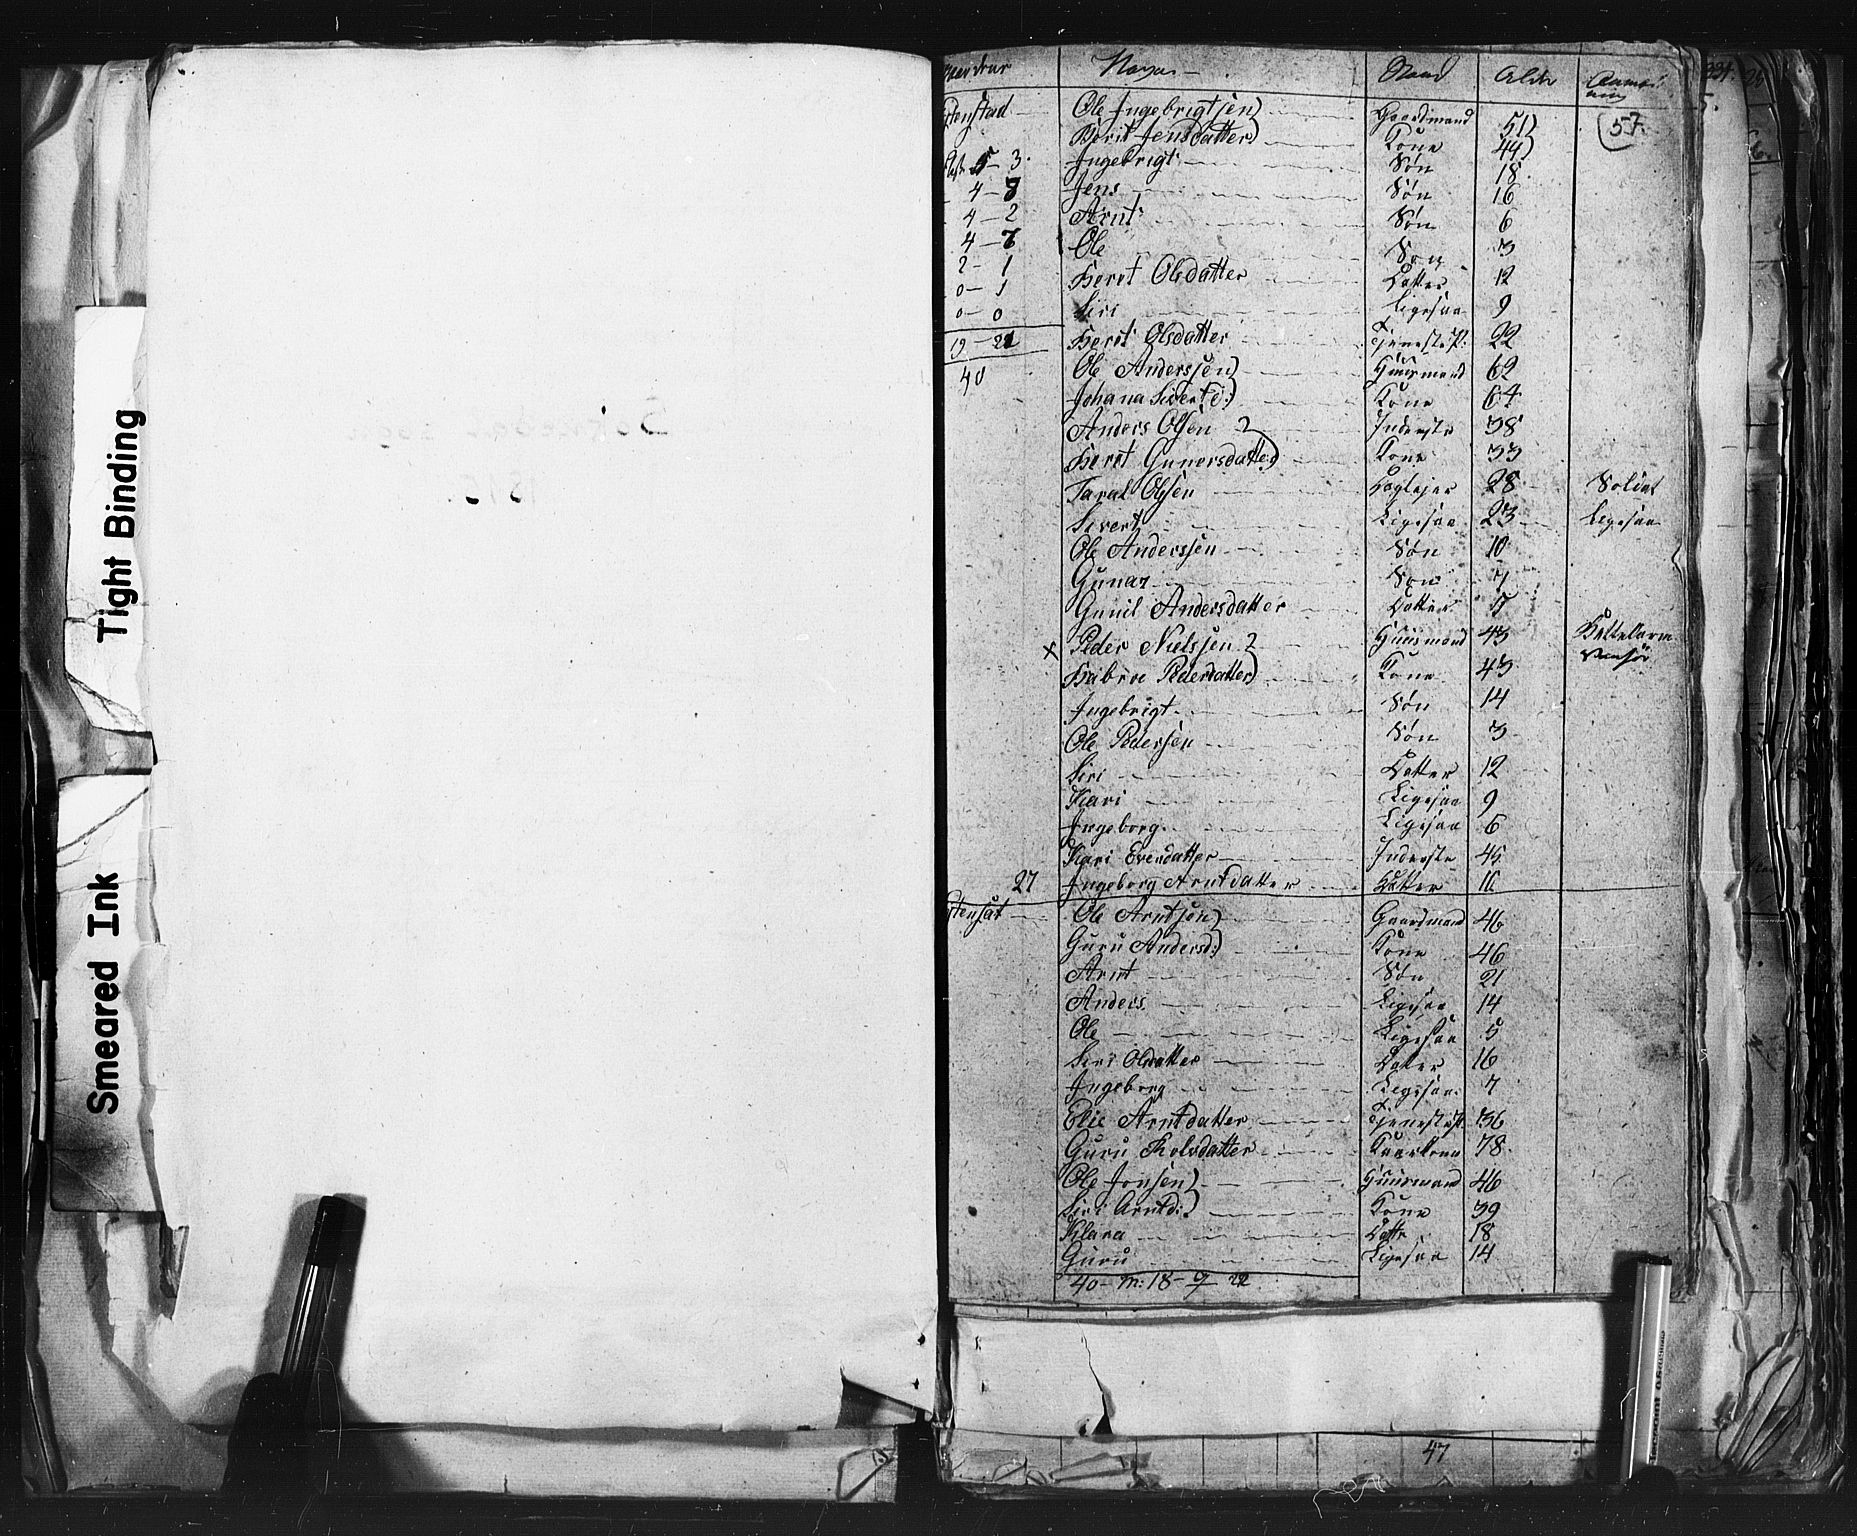 Tight Binding
Smeared Ink
Navne Stand Alder Anmærkning
57.
Ole Ingebrigtsen) Gaardmand 51)
Berit Jensdatter) Kone 44)
5-3. Ingebrigt Søn 18
4-8 Jens Søn 16
4-2 Arnt Søn 6
4-7 Ole Søn 3
2-1 Beret Olsdatter Datter 12
0-1 Siri Ligesaa 9
0-0
19-21 Beret Olsdatter Tjenestep. 22
40 Ole Anderssen) Huusmand 62
Johana Sivertd:) Kone 64
Anders Olsen Inderste 38
Beret Gunersdatter) Kone 33
Taral Olsen 28 Soldat
Sivert Ligesaa 23 Ligesaa
Ole Anderssen Søn 10
Gunar Søn 7
Gunil Andersdatter Datter 5
x Peder Nielssen Huusmand 43
Kone 43
Ingebrigt Søn 14
Ole Pedersen Søn 3
Siri Datter 12
Kari Ligesaa 9
Ingeborg Ligesaa 6
Kari Eversdatter Inderste 45
27 Ingeborg Arntdatter Datter 16
Ole Arntsøn) Gaardmand 46
Guru Andersd:) Kone 46
Arnt Søn 21
Anders Ligesaa 14
Ole Ligesaa 5
Siri Olsdatter Dater 16
Ingeborg Ligesaa 7
Elie Arntdatter Tjenestep. 36
Guru Kolsdatter 78
Ole Jonsen) Huusmand 46
Siri Arntd:) Kone 39
Klara Datter 18
Guru Ligesaa 14
40 - m: 18 - q 22
47